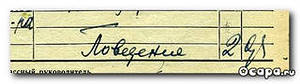 -ра
Поведение 2 (два)
ассный руководитель
©capa.ru